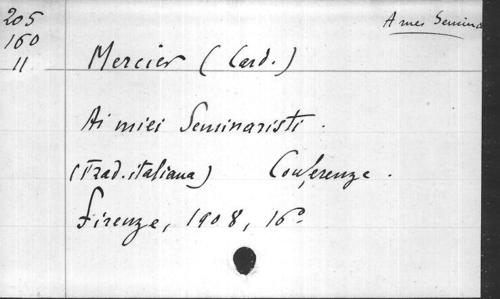 205
160
11
A mes Semina
Mercier (Card.)
Ai miei Seminaristi.
(Trad. italiana) Conferenze.
Firenze, 1908, 16°